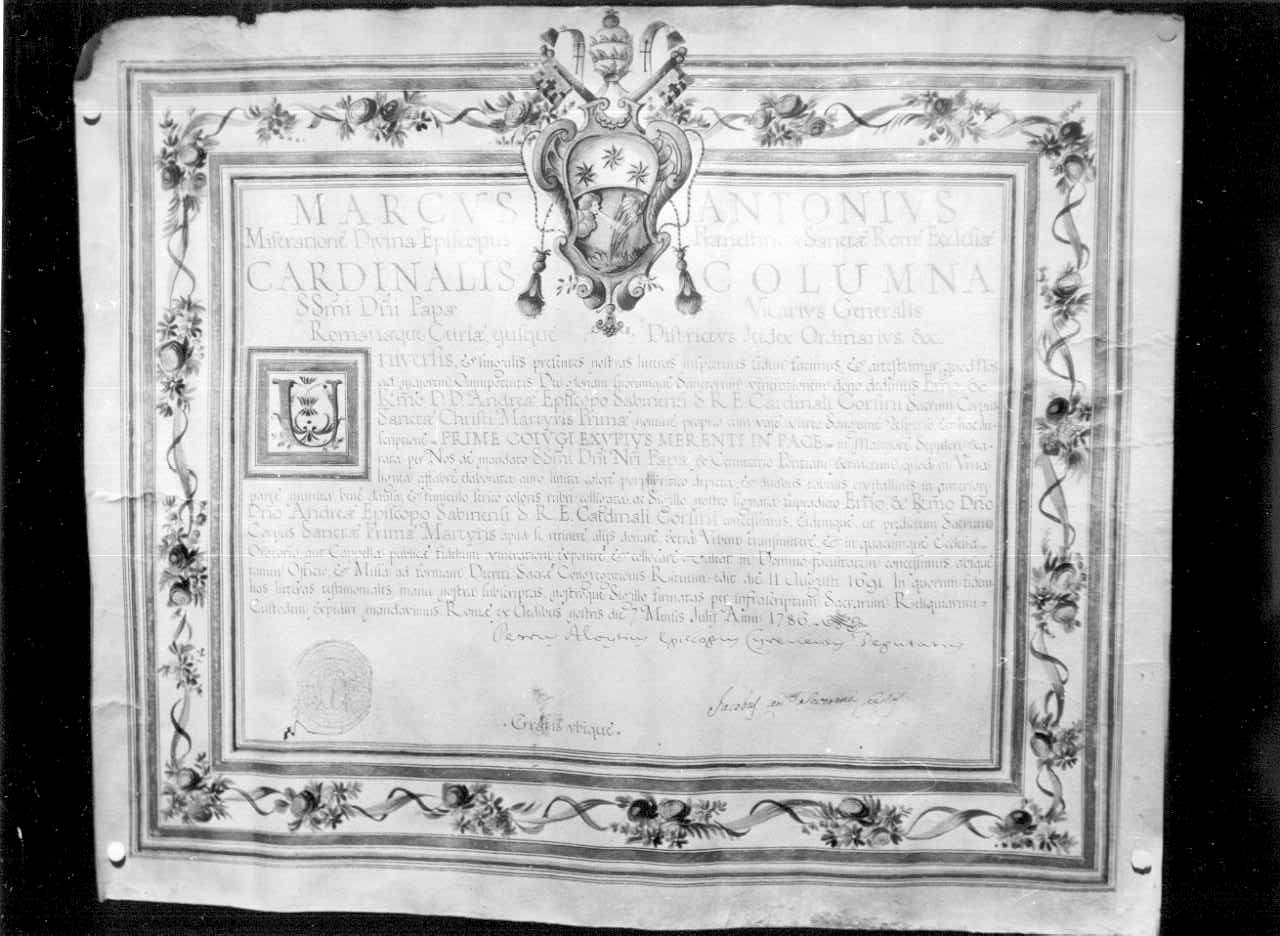 MARCVS ANTONIVS
Miseratione Divina Episcopus Sanctæ Rom. Ecclesiæ
CARDINALIS COLUMNA
SSm̃i Dñi Papæ Vicarivs Generalis
Romanæque Curiæ, ejusque Districtvs Judex Ordinarivs &c.
Universis, & singulis presentes nostras literas inspecturis fidem facimus, & attestamur, quod Nos
ad majorem Omnipotentis Dei gloriam suorumque Sanctorum venerationem dono dedimus Em̃o, &
Rm̃o D. D. Andreæ Episcopo Sabinensi S. R. E. Cardinali Corsini Sacrum Corpus
Sanctæ Christi Martyris Primæ nomine proprio cum vase vitreo Sanguine resperso & hac in-
scriptione = PRIME COIVGI EXVPIVS MERENTI IN PACE = in Marmore
per Nos de mandato SSm̃i Dñi Nr̃i Papæ & Cœmeterio quod in Vrna
colore depicta, & duabus tabulis crystallinis in anteriori
parte munita bene clausa, & funiculo serico coloris rubri colligata, ac Sigillo nostro signata supradicto Em̃o, & Rm̃o Dñō
Dñō Andreæ Episcopo Sabinensi S. R. E. Cardinali Corsini concessimus, eidemque, ut predictum Sacrum
Corpus Sanctæ Primæ Martyris apud se retinere, alijs donare, extra Vrbem transmittere, & in quacumque Ecclesia
Oratorio, aut Cappella publicæ fidelium venerationi exponere, & collocare valeat in Domino facultatem concessimus, absque
tamen Officio, & Missa ad formam Decreti Sacræ Congregationis Rituum edit. die 11 Augusti 1691. In quorum fidem
has literas testimoniales manu nostra subscriptas, nostroque Sigillo firmatas per infrascriptum Sacrarum Reliquiarum
Custodem expediri mandavimus. Romæ ex Ædibus nostris die 7 Mensis Julij Anni 1786.
Aloysius Episcopus Cyrenensis Deputatus
Jacobus
Gratis vbique.